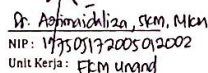 Dr. Aṣfimaichliza, SKM, MKM
NIP : 197505172005012002
Unit Kerja : FKM Unand